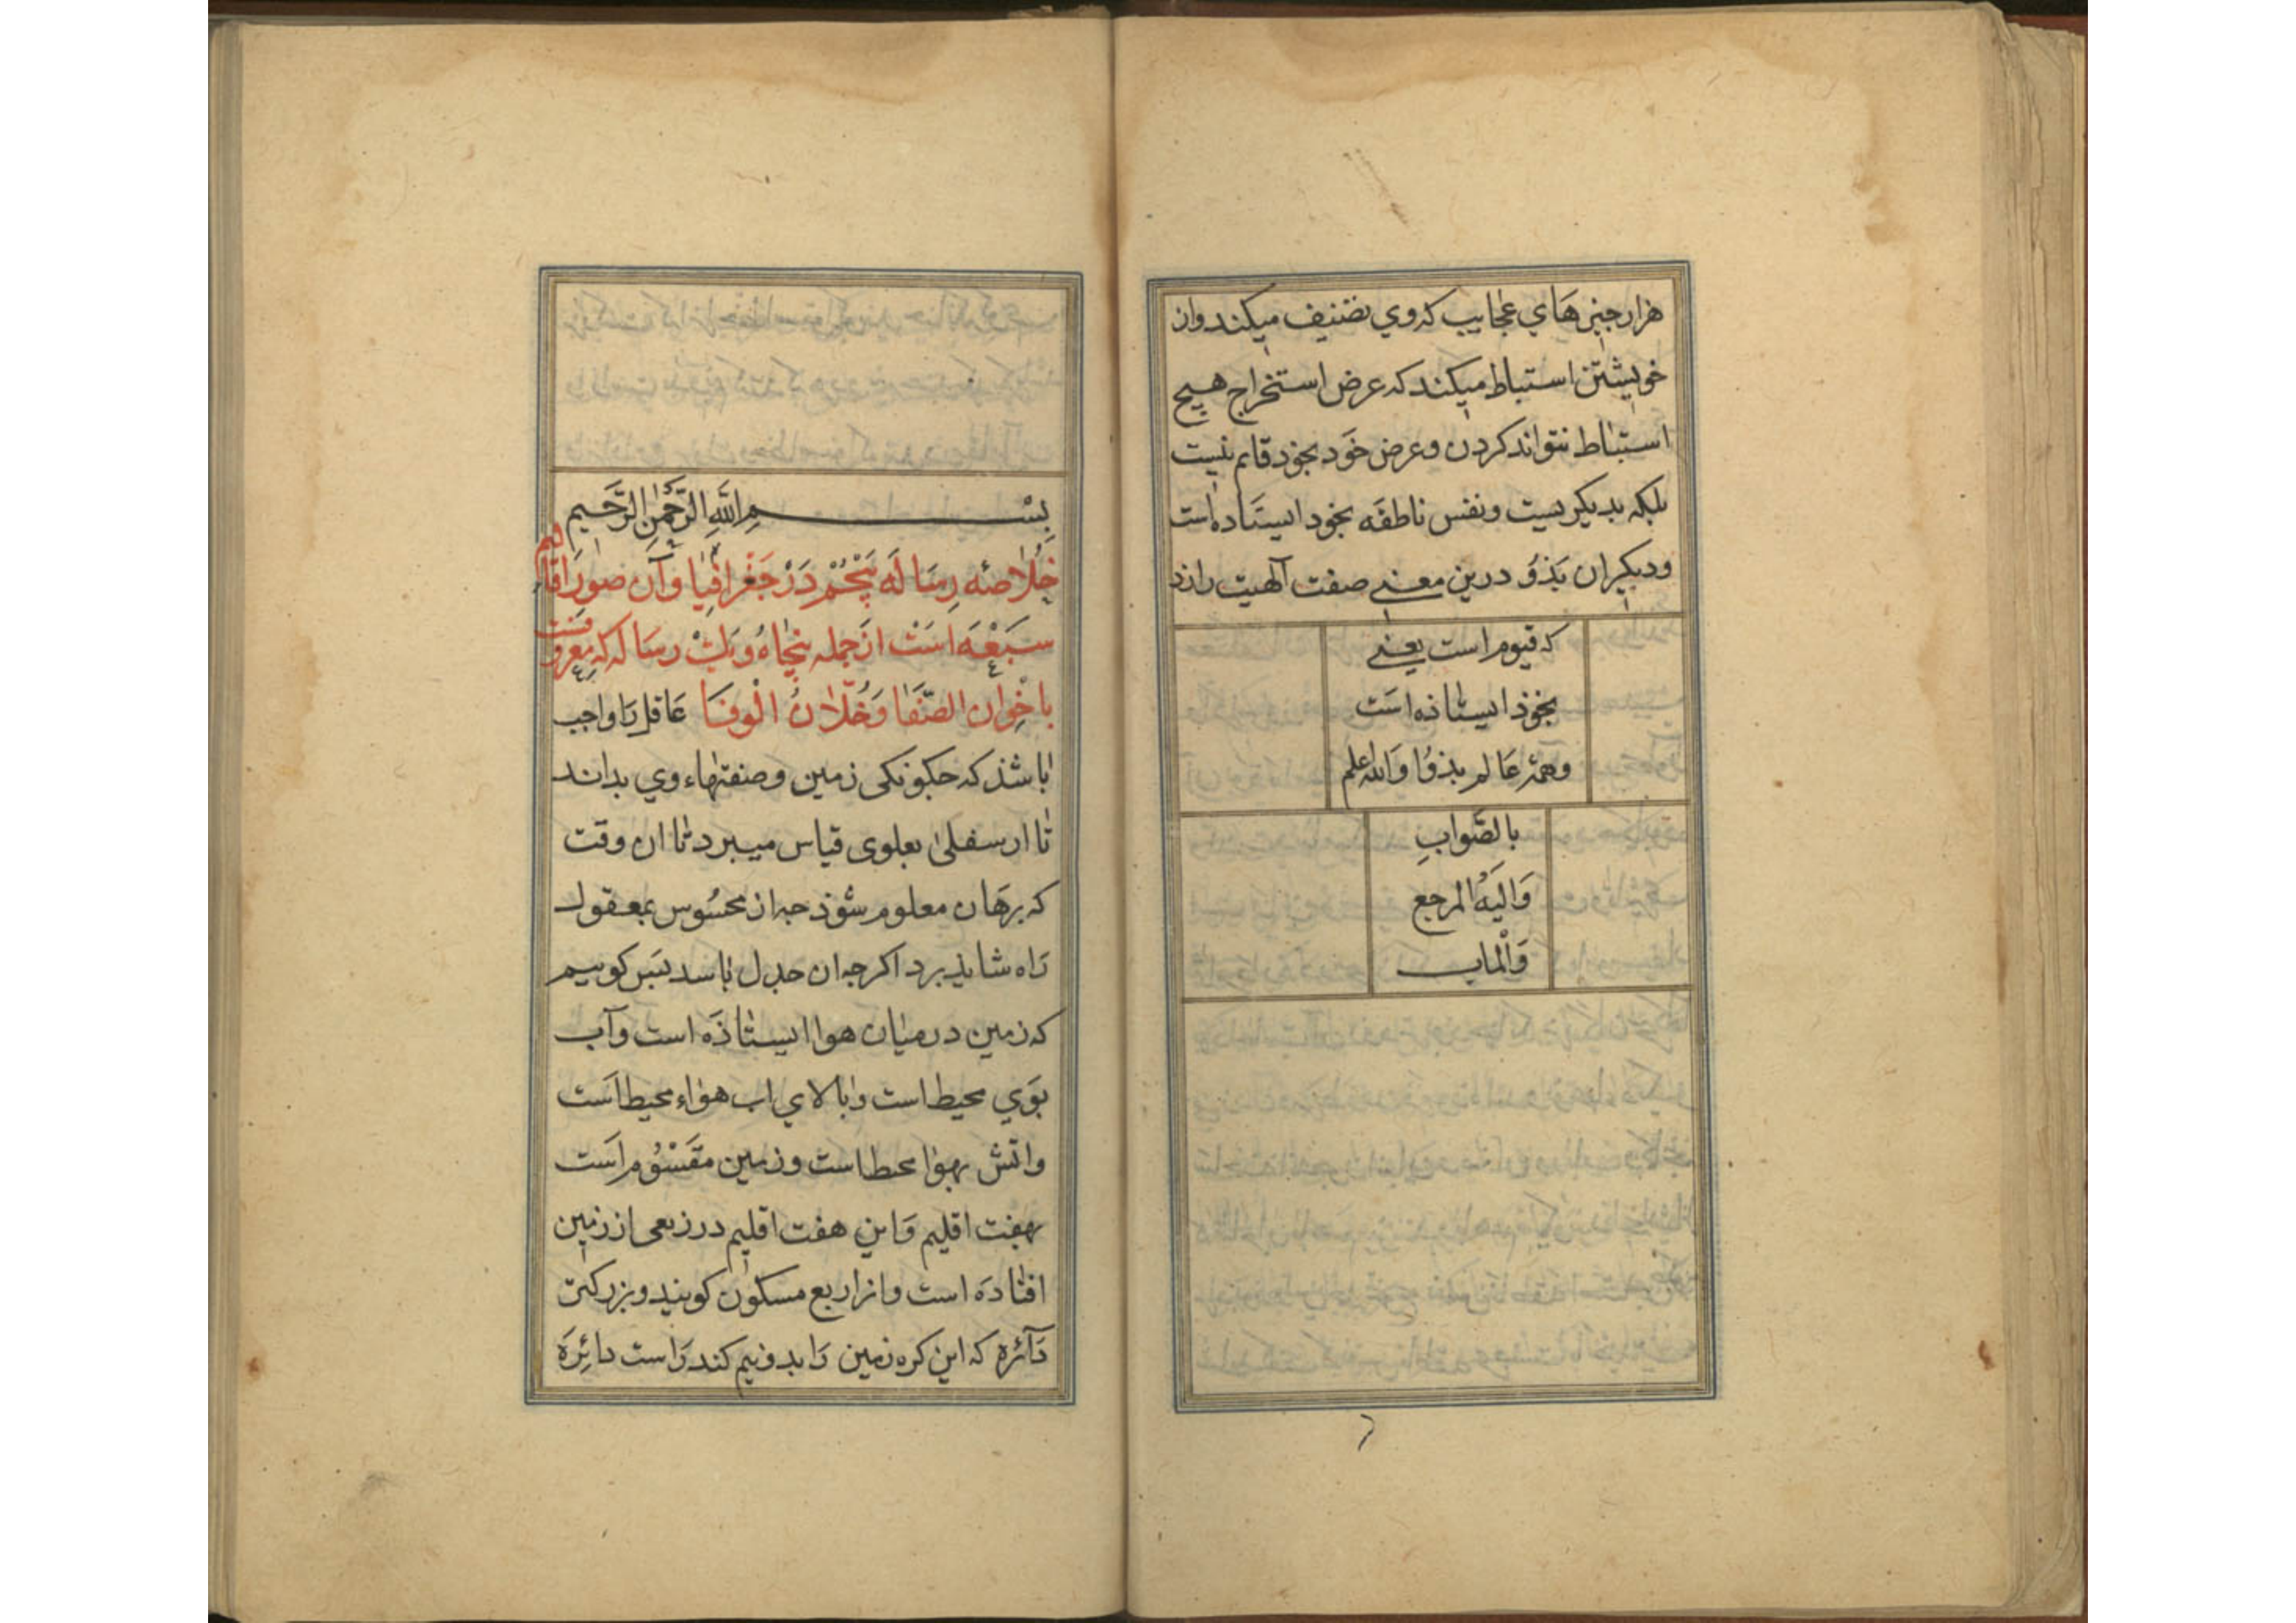 هزار چیزهاي عجایب که وي تصنیف میکند و از
خویشتن استنباط میکند که عرض استخراج هیچ
استنباط نتواند کردن و عرض خود بخود قایم نیست
بلکه بدیکریست و نفس ناطقه بخود ایستاده است
و دیکران بذو درین معنی صفت آلهیت دارند
که قیوم است یعنی
بخوذ ایستاذه است
و همه عالم بذو والله اعلم
بالصواب
والیه المرجع
والماب
بِسْمِ اللَّهِ الرَّحْمٰنِ الرَّحِیم
خلاصه رساله پنجم در جغرافیا وآن صور اقالیم
سبعه است از جمله پنجاه ویك رساله که معروفست
باخوان الصفا وخلان الوفا عاقل را واجب
باشذ که جکونکی زمین و صفتهاء وي بداند
تا از سفلی بعلوی قیاس میبرد تا ان وقت
که برهان معلوم شوذ جه از محسوس بمعقول
راه شایذ برد اکرجه ان جدل باسد بس کوییم
که زمین در میان هوا ایستاذه است وآب
بوي محیط است وبالاي اب هواء محیط است
واتش بهوا محیط است وزمین مقسوم است
بهفت اقلیم واین هفت اقلیم در ربعی از زمین
افتاده است وانرا ربع مسکون کویند وبزرکترین
دآئره که این کره زمین را بدونیم کند راست دائره